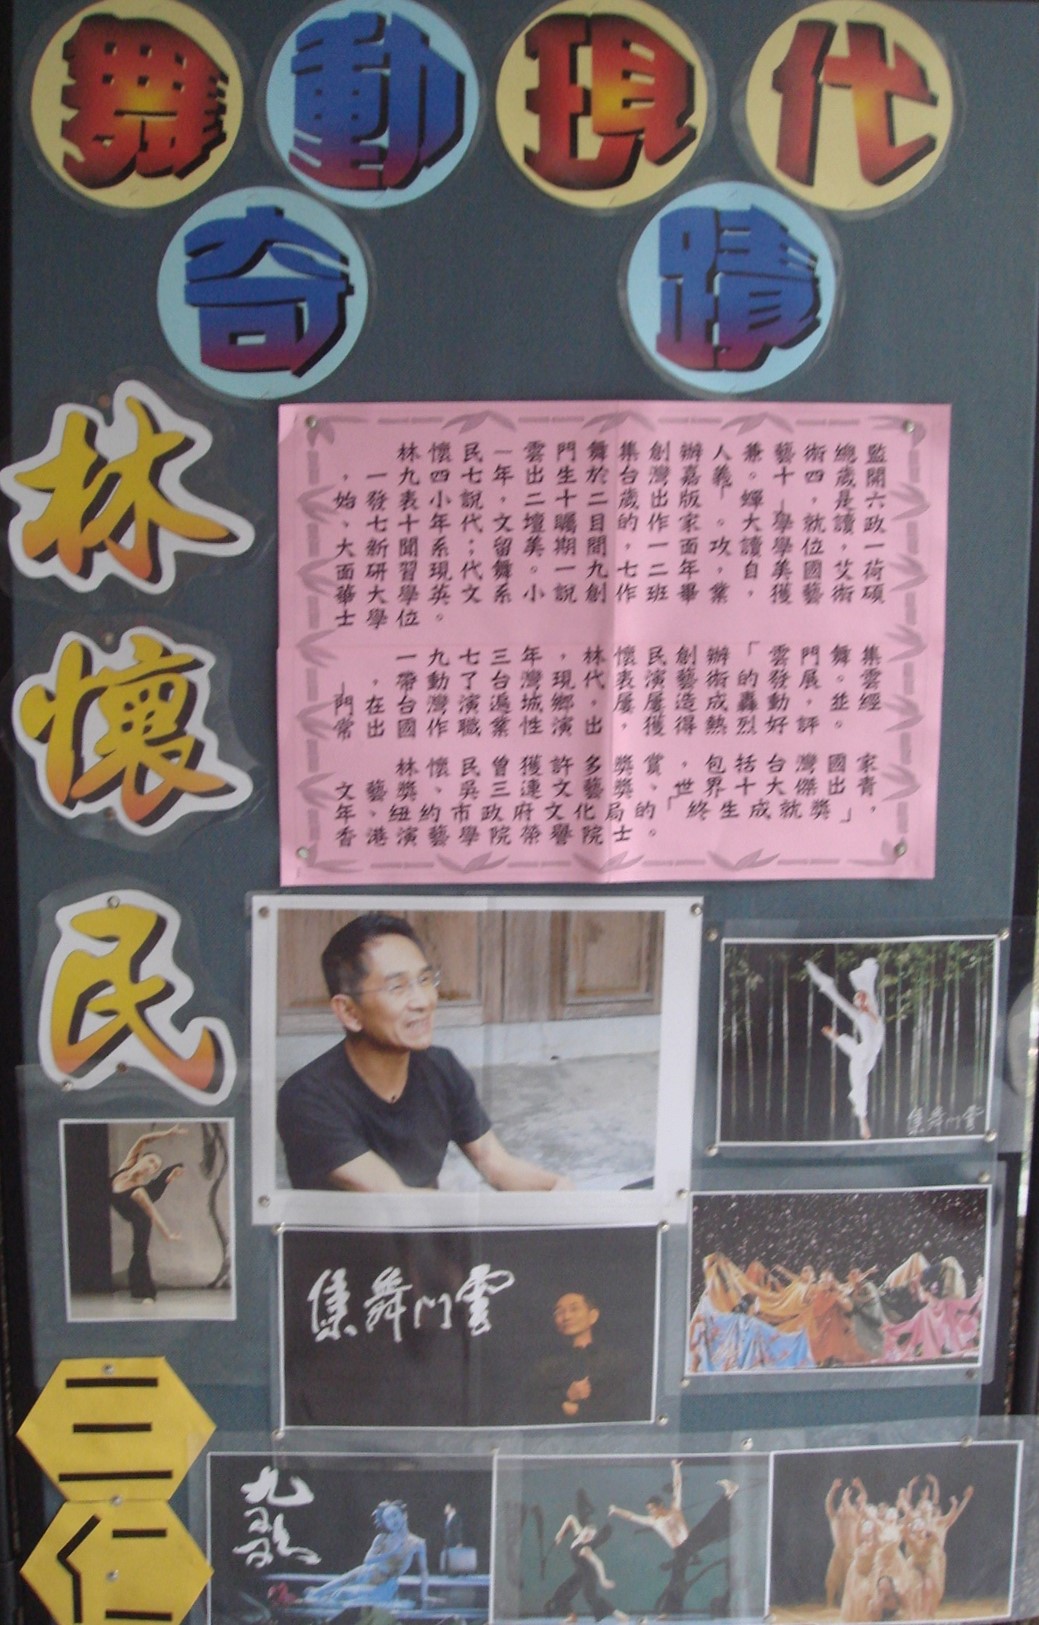 舞動現代
奇蹟
林懷民
林懷民—雲門舞集創辦人兼藝術總監
，一九四七年出生於台灣嘉義。十四歲開
始發表小說，二十二歲出版「蟬」，是六
、七十年代文壇矚目的作家。大學就讀政
大新聞系；留美期間，一面攻讀學位，一
面研習現代舞。一九七二年，自美國艾荷
華大學英文系小說創作班畢業，獲藝術碩
士學位。
一九七三年，林懷民創辦「雲門舞集
」，帶動了台灣現代表演藝術的發展。雲
門在台灣演遍城鄉，屢屢造成轟動，並經
常出國作職業性演出，獲得熱烈好評。
林懷民曾獲許多獎賞，包括台灣國家
文藝獎、吳三連文藝獎、世界十大傑出青
年、紐約市政府文化局的「終生成就獎」，
香港演藝學院榮譽院士。
雲門舞集
雲門舞集
三仁
九歌